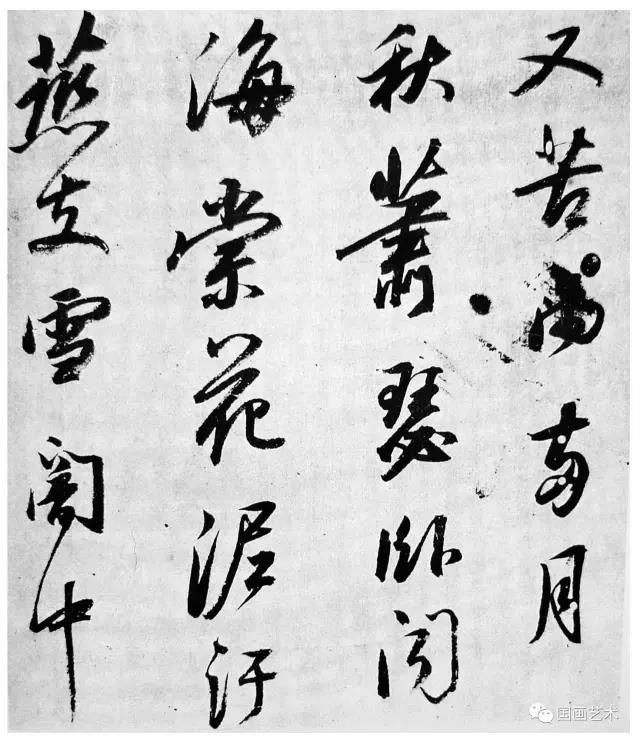 又苦雨兩月
秋蕭瑟卧聞
海棠花泥汙
燕支雪闇中
国画艺术